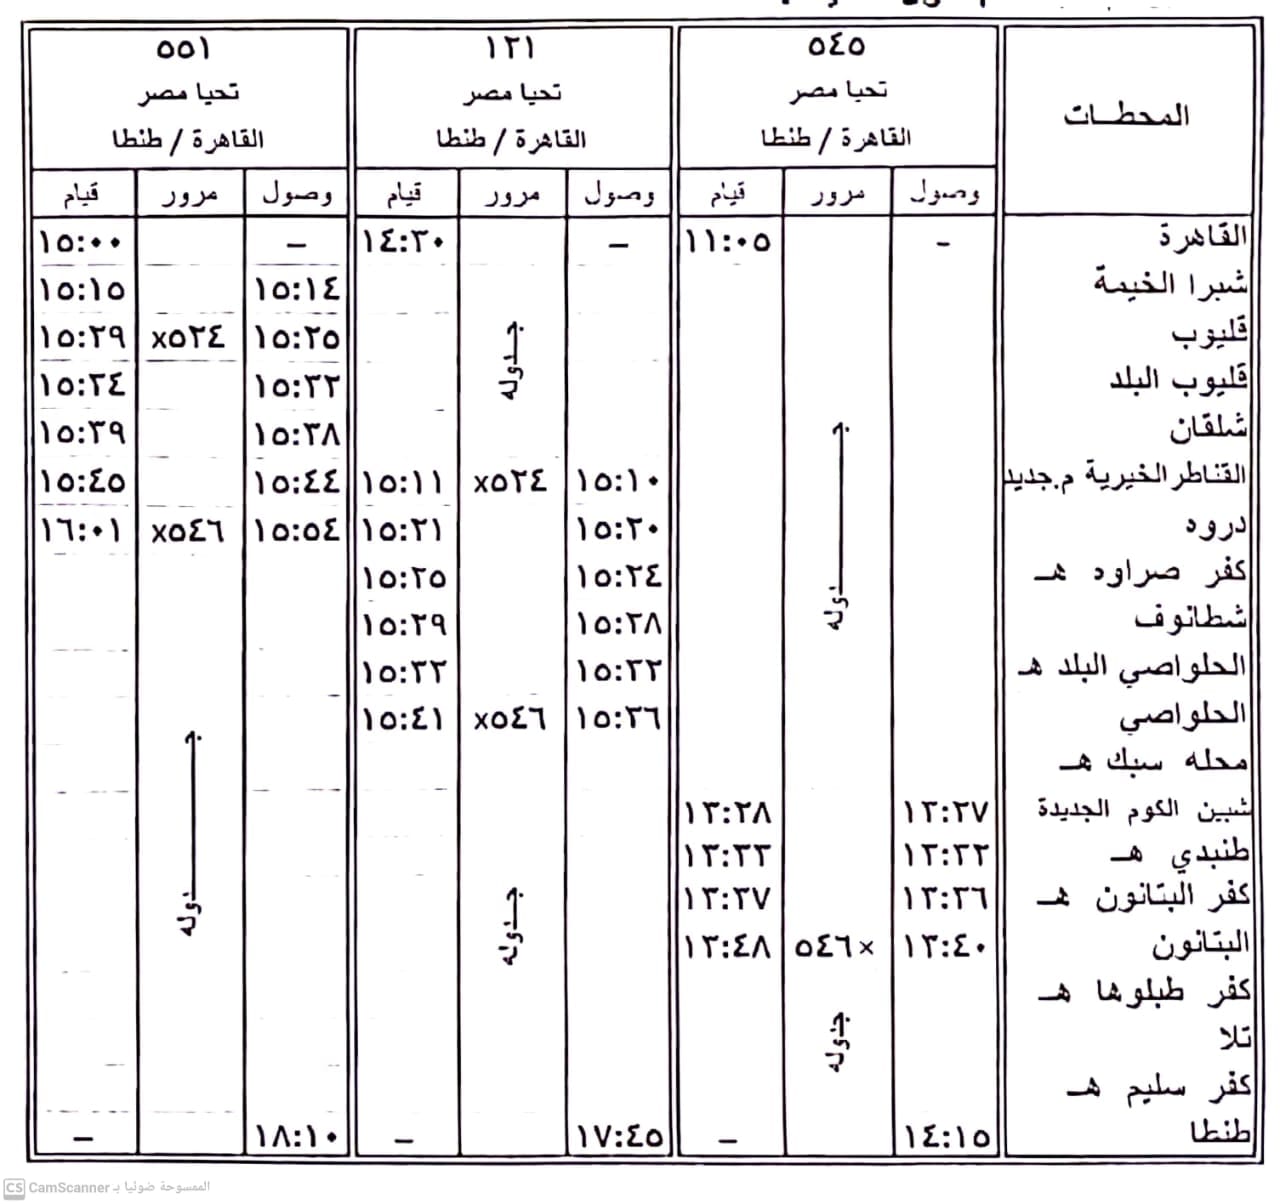 ٥٤٥ ١٢١ ٥٥١
المحطـات تحيا مصر تحيا مصر تحيا مصر
القاهرة / طنطا القاهرة / طنطا القاهرة / طنطا
وصول مرور قيام وصول مرور قيام وصول مرور قيام
القاهرة – ١١:٠٥ – ١٤:٣٠ – ١٥:٠٠
شبرا الخيمة ١٥:١٤ ١٥:١٥
قليوب جدوله ١٥:٢٥ x٥٣٤ ١٥:٢٩
قليوب البلد ١٥:٣٣ ١٥:٣٤
شلقان جدوله ١٥:٣٨ ١٥:٣٩
القناطر الخيرية م.جديد ١٥:١٠ x٥٣٤ ١٥:١١ ١٥:٤٤ ١٥:٤٥
دروه ١٥:٢٠ ١٥:٢١ ١٥:٥٤ x٥٤٦ ١٦:٠١
كفر صراوه هـ ١٥:٢٤ ١٥:٢٥
شطانوف ١٥:٢٨ ١٥:٢٩
الحلواصي البلد هـ ١٥:٣٢ ١٥:٣٣
الحلواصي ١٥:٣٦ x٥٤٦ ١٥:٤١
محله سبك هـ جدوله
شبين الكوم الجديدة ١٣:٢٧ ١٣:٢٨
طنبدي هـ ١٣:٣٢ ١٣:٣٣
كفر البتانون هـ ١٣:٣٦ ١٣:٣٧ جدوله
البتانون ١٣:٤٠ x٥٤٦ ١٣:٤٨
كفر طبلوها هـ
تلا جدوله
كفر سليم هـ
طنطا ١٤:١٥ – ١٧:٤٥ – ١٨:١٠ –
CS CamScanner الممسوحة ضوئيا بـ